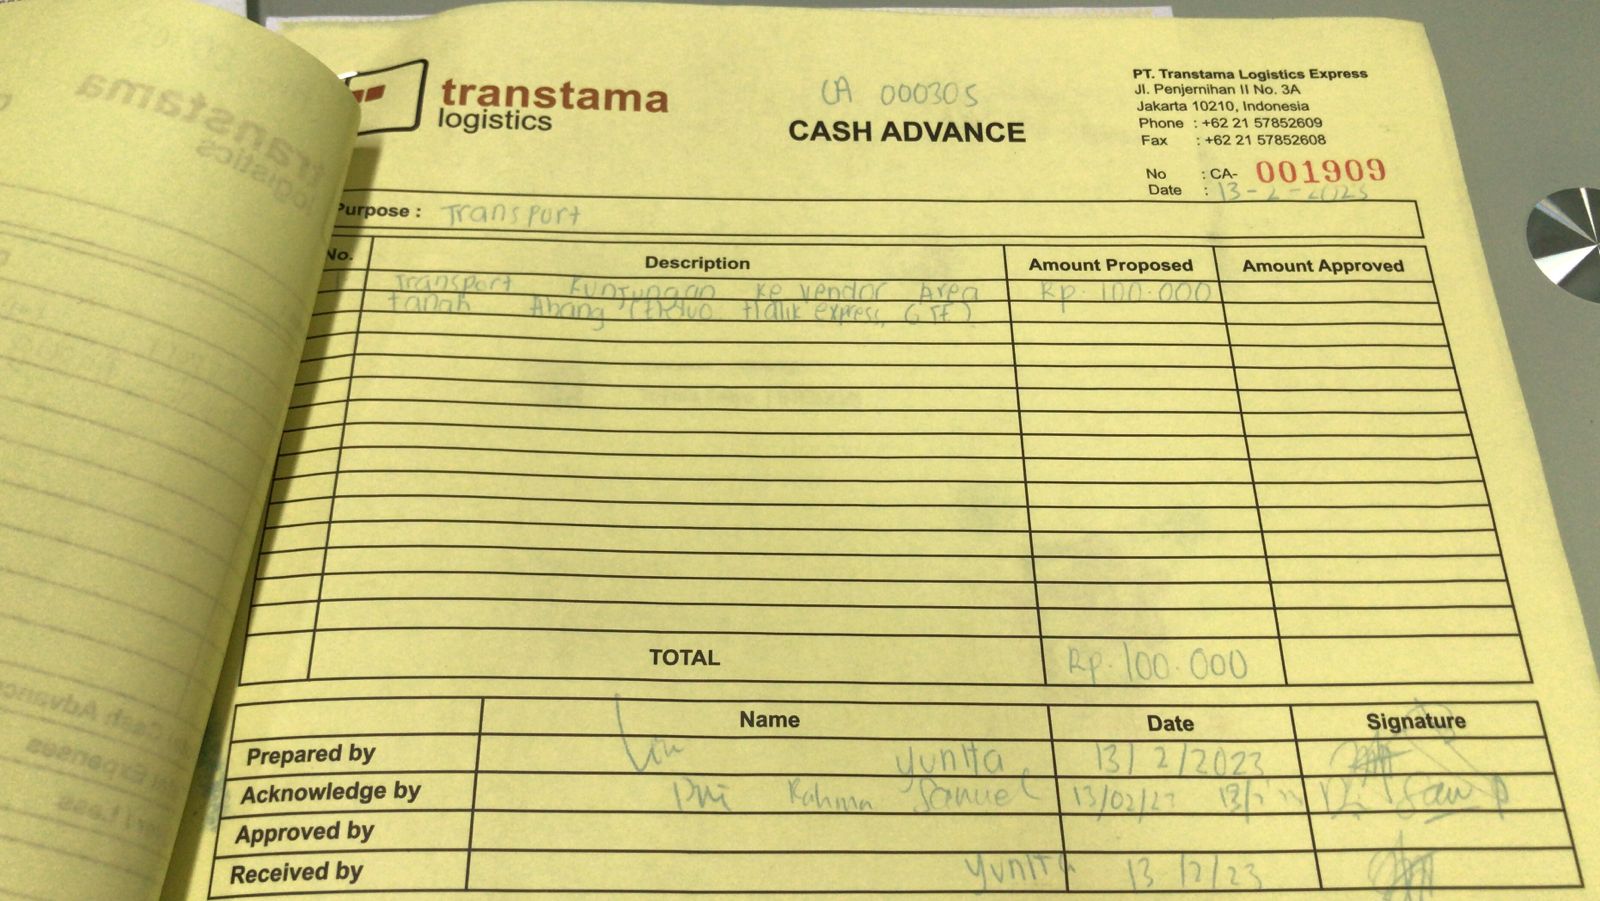 transtama
logistics
CA 000305
CASH ADVANCE
PT. Transtama Logistics Express
Jl. Penjernihan II No. 3A
Jakarta 10210, Indonesia
Phone : +62 21 57852609
Fax : +62 21 57852608
No : CA- 001909
Date : 13-2-2023
Purpose : Transport
No. Description Amount Proposed Amount Approved
Transport Kunjungan ke vendor Area Rp. 100.000
tanah Abang express,
TOTAL Rp. 100.000
Name Date Signature
Prepared by Yunita 13/2/2023
Acknowledge by Dwi Rahma Samuel 13/02/23
Approved by
Received by Yunita 13/2/23